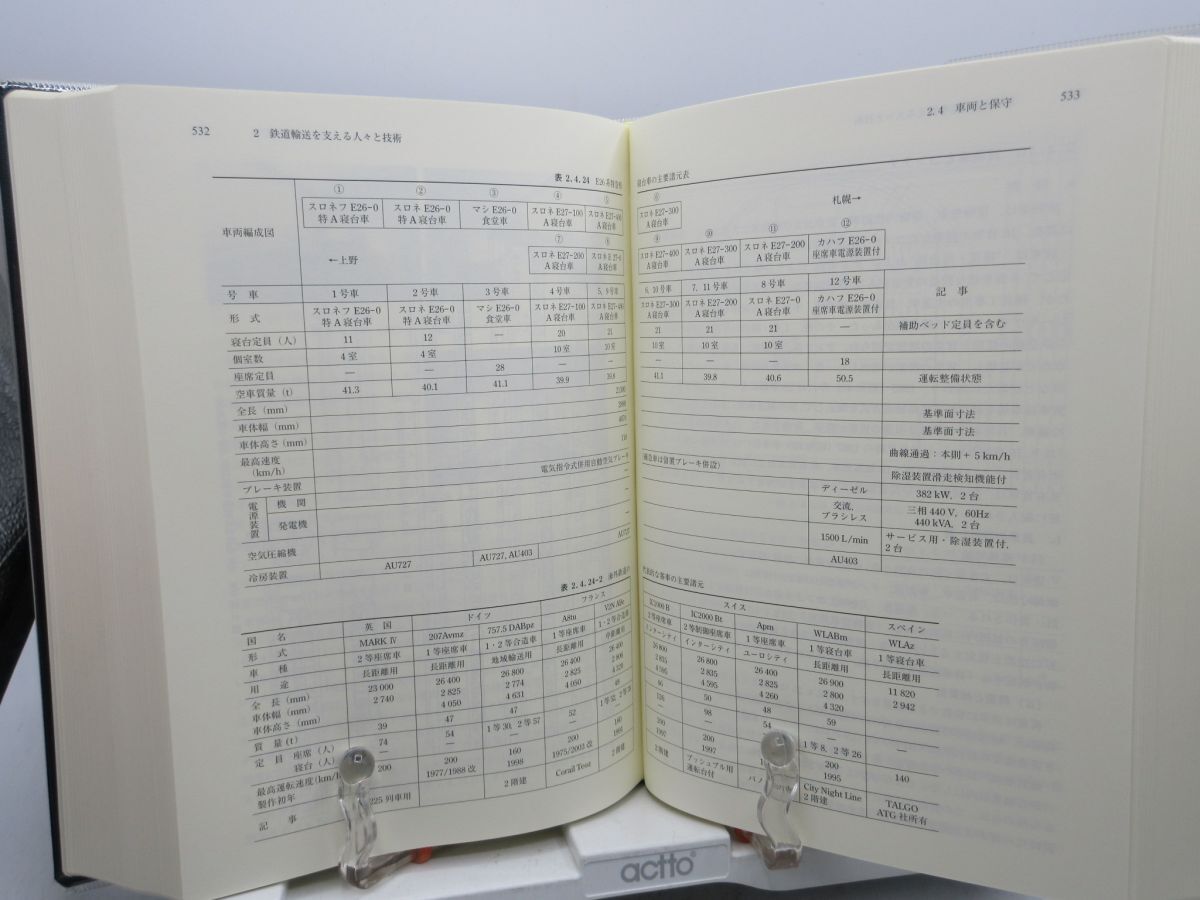 532
2 鉄道輸送を支える人々と技術
表 2.4.24 E26
① ② ③ ④ ⑤
スロネフ E26-0 スロネ E26-0 マシ E26-0 スロネ E27-100 スロネ E27-400
特A寝台車 特A寝台車 食堂車 A寝台車 A寝台車
車両編成図
⑦ ⑧
←上野
スロネ E27-200
A寝台車 A寝台車
号 車 1号車 2号車 3号車 4号車 5, 9号車
形 式 スロネフ E26-0 スロネ E26-0 マシ E26-0 スロネ E27-100
特A寝台車 特A寝台車 食堂車 A寝台車 A寝台車
寝台定員（人） 11 12 — 20 21
個室数 4室 4室 10室 10室
座席定員 — — 28 — —
空車質量（t） 41.3 40.1 41.1 39.9
全長（mm）
車体幅（mm）
車体高さ（mm）
最高速度
（km/h） 110
ブレーキ装置 電気指令式併用自動空気ブレーキ
電源装置 機 関 —
発電機 —
空気圧縮機 —
冷房装置 AU727 AU727, AU403 AU727
表 2.4.24-2 海外鉄道の
国 名 英 国 ドイツ フランス
形 式 MARK Ⅳ 207Avmz 757.5 DABpz A8tu
車 種 2等座席車 1等座席車 1・2等合造車 1等座席車 1・2等合造車
用 途 長距離用 長距離用 地域輸送用 長距離用
全 長（mm） 23 000 26 400 26 800 26 400 26 400
車体幅（mm） 2 740 2 825 2 774 2 825
車体高さ（mm） 4 050 4 631 4 050 4 320
質 量（t） 39 47 47 48
定 員 座席（人） 74 54 1等30, 2等57 52
寝台（人） — — — —
最高運転速度（km/h） 200 200 160 200
製作初年 1977/1988改 1998 1975/2003改
記 事 225 列車用 2階建 Corail Teoz 2階建
2.4 車両と保守 533
寝台車の主要諸元表
⑥
札幌→
スロネ E27-300
A寝台車
⑨ ⑩ ⑪ ⑫
スロネ E27-400 スロネ E27-300 スロネ E27-200 カハフ E26-0
A寝台車 A寝台車 A寝台車 座席車電源装置付
6, 10号車 7, 11号車 8号車 12号車 記 事
スロネ E27-300 スロネ E27-200 スロネ E27-0 カハフ E26-0
A寝台車 A寝台車 A寝台車 座席車電源装置付
21 21 21 — 補助ベッド定員を含む
10室 10室 10室
— — — 18
41.1 39.8 40.6 50.5 運転整備状態
基準面寸法
基準面寸法
曲線通過：本則＋5 km/h
（緩急車は留置ブレーキ併設） 除湿装置滑走検知機能付
ディーゼル 382 kW, 2台
交流, 三相 440 V, 60Hz
ブラシレス 440 kVA, 2台
1500 L/min サービス用・除湿装置付,
2台
AU403
代表的な客車の主要諸元
スイス スペイン
IC2000 B IC2000 Bt Apm WLABm WLAz
2等座席車 2等制御座席車 1等座席車 1等寝台車 1等寝台車
インターシティ インターシティ ユーロシティ 長距離用 長距離用
26 800 26 800 26 400 26 900 11 820
2 835 2 835 2 825 2 800 2 942
4 595 4 595 4 260 4 320
50 48 59 —
98 54 — —
— 1等8, 2等26
200 200 200 140
1997 1997 1995
2階建 プッシュプル用 City Night Line TALGO
運転台付 2階建 ATG 社所有
actto